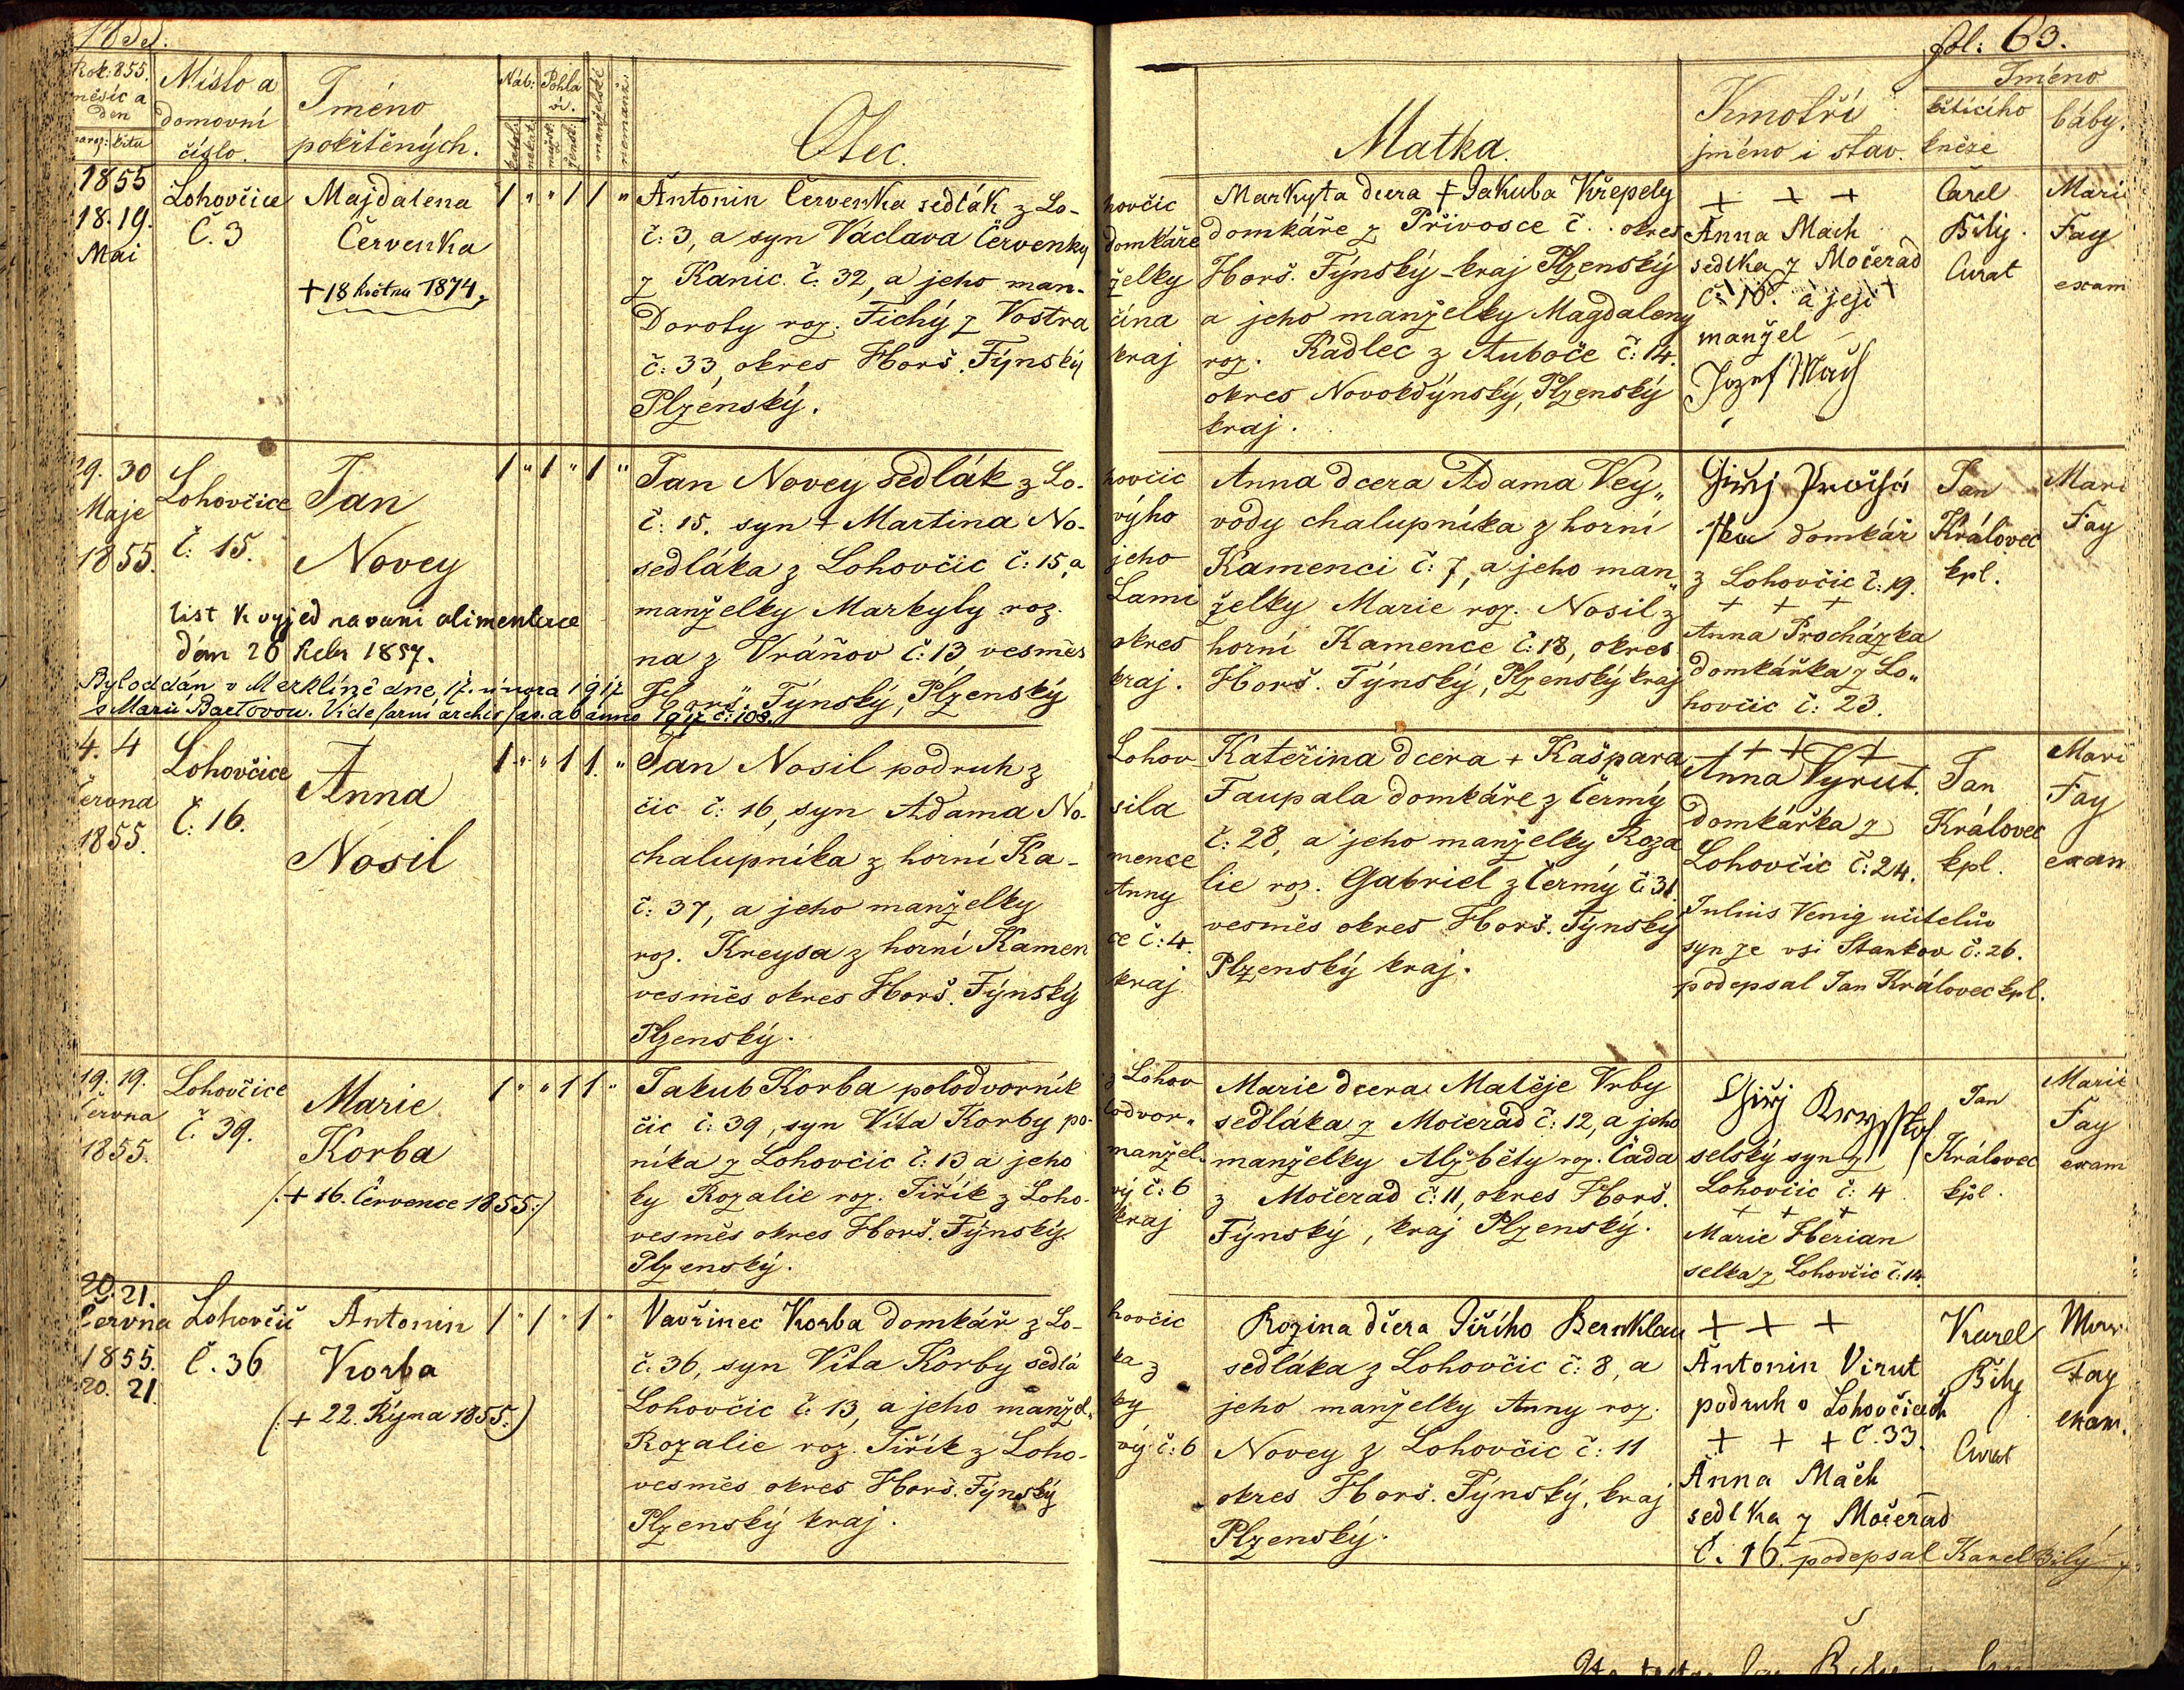 1855.
fol: 63.
Rok: 855.
měsíc a
den
naroz: křtu
Místo a
domovní
číslo.
Jméno
pokřtěných.
Náb:
kathol:
nekat:
Pohla
ví.
mužsk:
žensk:
manželské
nemanž:
Otec.
Matka.
Kmotři
jméno i stav.
Jméno
křtícího
kněze
báby.
1855
18. 19.
Mai
Lohovčice
Č. 3
Majdalena
Červenka
+ 18 května 1874.
1 " " 1 1 "
Antonin Červenka sedlák z Lo-
hovčic
č: 3, a syn Václava Červenky
domkáře
z Kanic č. 32, a jeho man-
želky
Doroty roz. Tichý z Vostra
čína
č: 33, okres Horš. Týnský
kraj
Plzenský.
Markyta dcera + Jakuba Křepely
domkáře z Přivosce č. . okres
Horš. Týnský - kraj Plzenský
a jeho manželky Magdaleny
roz. Kadlec z Auboče č: 14.
okres Novokdýnský, Plzenský
kraj.
+ + +
Anna Mach
sedlka z Močerad
č: 10. a její
manžel
Jozef Mach
Carel
Bílý.
Curat
Marie
Fay
exam
29. 30
Maje
1855.
Lohovčice
č: 15.
Jan
Novey
list k vyjednavani alimentace
dán 26 1857.
Byl oddán v Merklíně dne 17. února 1917
s Marií Bartovou. Vide farní archiv fas. ab anno 1917 č: 103.
1 " 1 " 1 "
Jan Novey sedlák z Lo-
hovčic
č: 15. syn + Martina No-
výho
sedláka z Lohovčic č: 15, a
jeho
manželky Markyty roz.
Lami
na z Vráňov č: 13 vesměs
okres
Horš. Týnský, Plzenský
kraj.
Anna dcera Adama Vey„
vody chalupníka z horní
Kamenci č: 7, a jeho man„
želky Marie roz. Nosil z
horní Kamence č: 18, okres
Horš. Týnský, Plzenský kraj
Giřj Prochá
zka domkář
z Lohovčic č: 19.
+ + +
Anna Procházka
domkářka z Lo„
hovčic č: 23.
Jan
Královec
kpl.
Mari
Fay
4. 4
června
1855.
Lohovčice
Č: 16.
Anna
Nosil
1 " " 1 1. "
Jan Nosil podruh z
Lohov
čic č: 16, syn Adama No-
sila
chalupníka z horní Ka-
mence
č: 37, a jeho manželky
Anny
roz. Kreysa z horní Kamen
ce č: 4.
vesměs okres Horš. Týnský
kraj
Plzenský.
Kateřina dcera + Kašpara
Faupala domkáře z Čermý
č: 28, a jeho manželky Roza
lie roz. Gabriel z Čermý č: 31
vesměs okres Horš. Týnský
Plzenský kraj.
+ + +
Anna Vyrut.
domkářka z
Lohovčic č: 24.
Julius Venig učitelův
syn ze vsi Stankov č: 26.
podepsal Jan Královec kpl.
Jan
Královec
kpl.
Mari
Fay
exam
19. 19.
června
1855.
Lohovčice
č: 39.
Marie
Korba
(+ 16. Července 1855.)
1 " " 1 1 "
Jakub Korba polodvorník
z Lohov
čic č: 39, syn Víta Korby po-
lodvor„
níka z Lohovčic č: 13 a jeho
manžel
ky Rozalie roz. Jiřík z Loho-
vý č: 6
vesměs okres Horš. Týnský
kraj
Plzenský.
Marie dcera Matěje Vrby
sedláka z Močerad č: 12, a jeho
manželky Alžběty roz. Čada
z Močerad č: 11, okres Horš.
Týnský, kraj Plzenský.
Giřj
selský syn z
Lohovčic č: 4
+ + +
Marie Herian
selka z Lohovčic č: 14.
Jan
Královec
kpl.
Marie
Fay
exam
20. 21.
Června
1855.
20. 21.
Lohovčic
Č. 36
Antonin
Korba
(+ 22. Října 1855.)
1 " 1 " 1 "
Vavřinec Korba domkář z Lo-
hovčic
č: 36, syn Víta Korby sedlá
ka z
Lohovčic č: 13, a jeho manžel„
ky
Rozalie roz. Jiřík z Loho-
vý č: 6
vesměs okres Horš. Týnský
Plzenský kraj.
Rozina dcera Jiřího Bernklau
sedláka z Lohovčic č: 8, a
jeho manželky Anny roz.
Novey z Lohovčic č: 11
okres Horš. Týnský, kraj
Plzenský.
+ + +
Antonin Virut
podruh v Lohovčicech
+ + + Č. 33.
Anna Mach
sedlka z Močerad
Č. 16. podepsal Karel Bílý
Karel
Bílý
Curat
Mari
Fay
exam.